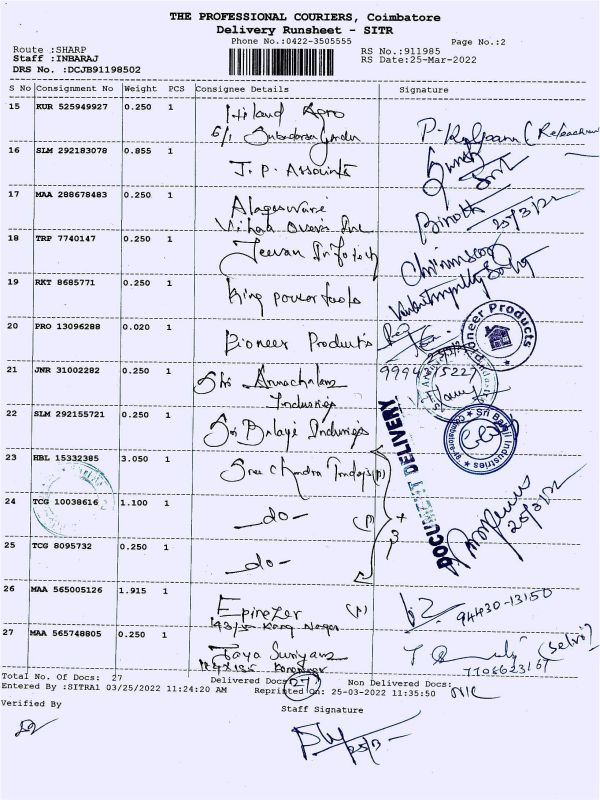 THE PROFESSIONAL COURIERS, Coimbatore
Delivery Runsheet - SITR
Phone No.:0422-3505555
Page No.:2
Route :SHARP
RS No.:911985
Staff :INBARAJ
RS Date:25-Mar-2022
DRS No. :DCJB91198502
S No Consignment No Weight PCS Consignee Details Signature
15 KUR 525949927 0.250 1 Hiland Agro
6/1
16 SLM 292183078 0.855 1 J. P. Associates
17 MAA 288678483 0.250 1 Alageswari Binoth
25/3/22
18 TRP 7740147 0.250 1 Jeevan Infotech
19 RKT 8685771 0.250 1 King power tools
20 PRO 13096288 0.020 1 Pioneer Products
Pioneer Products
21 JNR 31002282 0.250 1 Shri Arunachalam 9994715227
Industries
22 SLM 292155721 0.250 1 Sri Balaji Industries
Sri Balaji Industries
DOCUMENT DELIVERY
23 HBL 15332385 3.050 1 Sree Chandra Traders (P)
24 TCG 10038616 1.100 1 -do- (P)
25/3/22
25 TCG 8095732 0.250 1 -do-
26 MAA 565005126 1.915 1 Epinezer (P) 94430-13150
27 MAA 565748805 0.250 1 Jaya Suriyam (Selvi)
7706623167
Total No. Of Docs: 27 Delivered Docs: 27 Non Delivered Docs: Nil
Entered By :SITRA1 03/25/2022 11:24:20 AM Reprinted On: 25-03-2022 11:35:50
Verified By Staff Signature
25/3